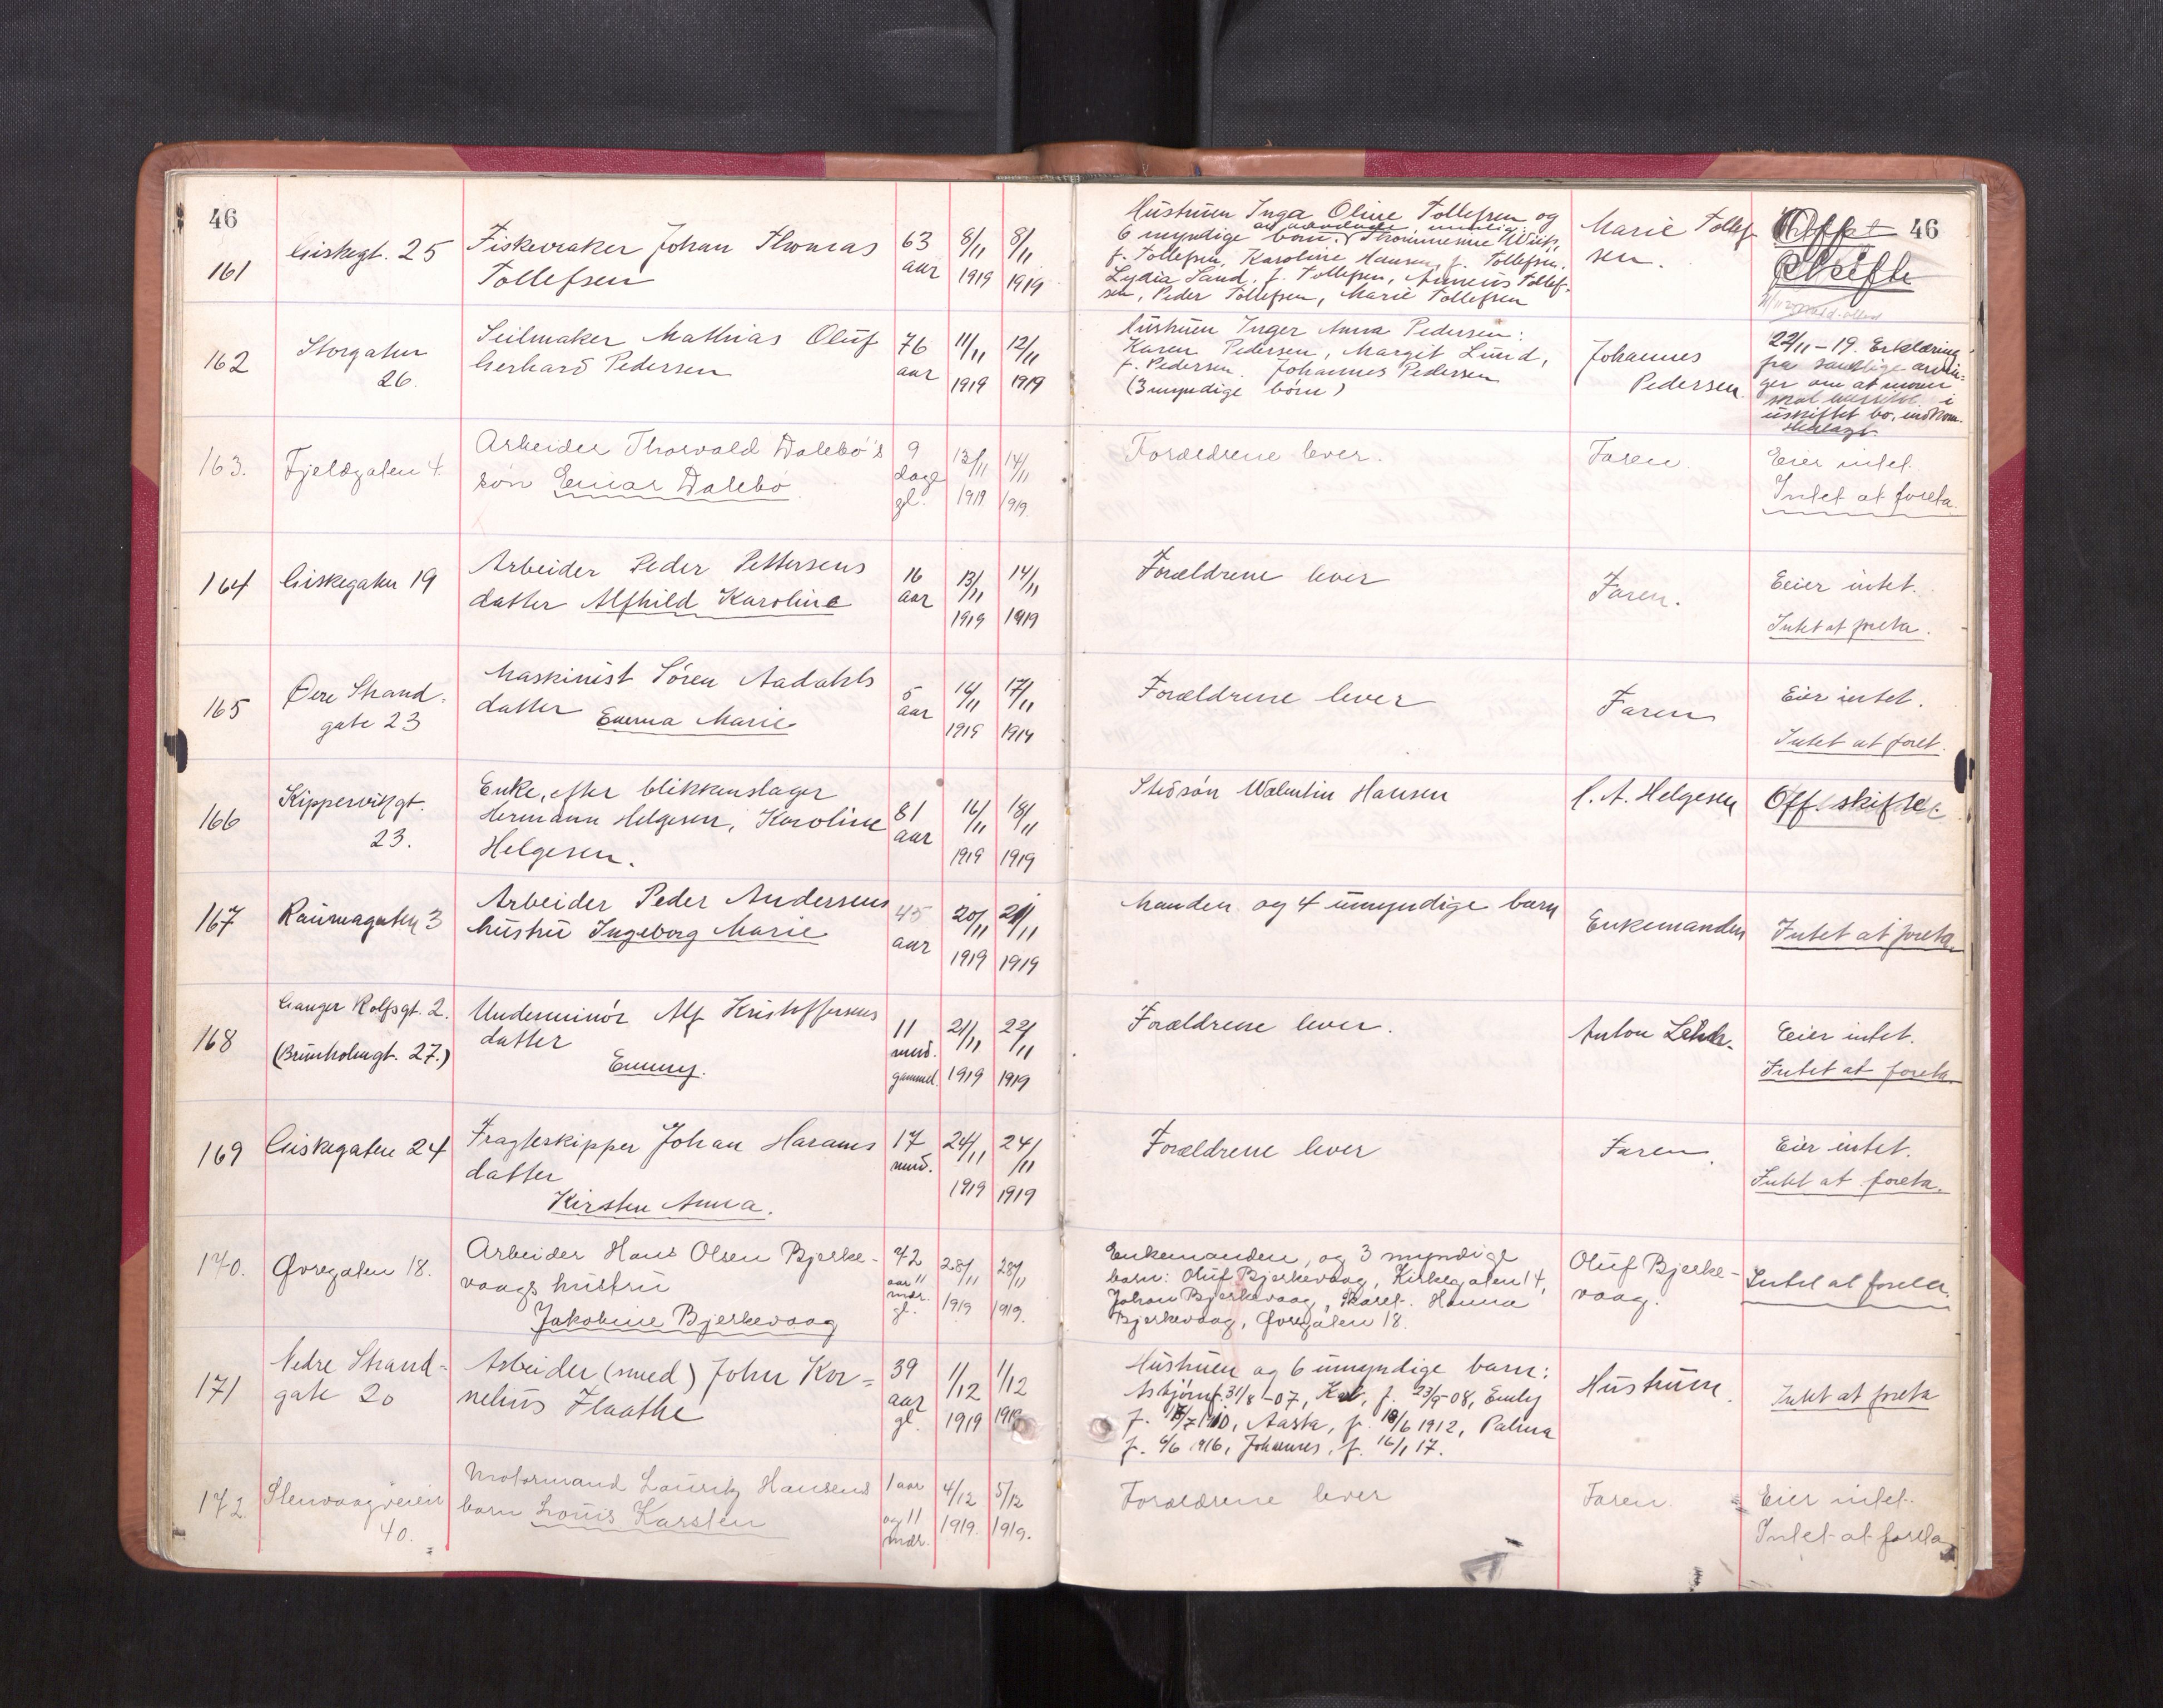 46
161
Giskegt. 25
Fiskevraker Johan Thomas
Tollefsen
63
aar
8/11
1919
8/11
1919
Hustruen Inga Oline Tollefsen og
6 myndige børn. Thommesine Wiik,
f. Tollefsen, Karoline Hansen, f. Tollefsen,
Lydia Sand, f. Tollefsen, Tollef-
sen, Peder Tollefsen, Marie Tollefsen
Marie Tollef-
sen.
46
162
Storgaten
26.
Seilmaker Mathias Oluf
Gerhard Pedersen
76
aar
11/11
1919
12/11
1919
Hustruen Inger Anna Pedersen:
Karen Pedersen, Margit Lund,
f. Pedersen. Johannes Pedersen
(3 myndige børn)
Johannes
Pedersen.
22/11-19. Erklæring
fra samtlige arvin-
ger om at moren
skal i
uskiftet bo, indkom.
163.
Fjeldgaten 4.
Arbeider Thorvald Dalebø's
søn Einar Dalebø
9
dage
gl.
13/11
1919
14/11
1919.
Forældrene lever.
Faren.
Eier intet.
Intet at foreta.
164
Giskegaten 19
Arbeider Peder Pettersens
datter Alfhild Karoline
16
aar
13/11
1919
14/11
1919
Forældrene lever
Faren.
Eier intet.
Intet at foreta.
165
Øvre Strand-
gate 23
Maskinist Søren Aadahls
datter Emma Marie
5
aar
1919
17/11
1919
Forældrene lever
Faren
Eier intet.
Intet at foret.
166
Kippervikgt.
23.
Enke, efter blikkenslager
Hermann Helgesen, Karoline
Helgesen.
81
aar
16/11
1919
18/11
1919
Stedsøn Walentin Hansen
C. A. Helgesen
Off. skifte.
167
Raumagaten 3
Arbeider Peder Andersens
hustru Ingeborg Marie
45
aar
20/11
1919
21/11
1919
Manden og 4 umyndige barn
Enkemanden
Intet at foreta.
168
Ganger Rolfsgt. 2.
(Brunholmgt. 27.)
Underminør Alf Kristoffersens
datter
Emmy.
11
mnd.
gammel.
21/11
1919
22/11
1919
Forældrene lever.
Anton
Eier intet.
Intet at foreta.
169
Giskegaten 24
Fragteskipper Johan Harams
datter
Kirsten Anna.
17
mnd.
24/11
1919
24/11
1919
Forældrene lever
Faren.
Eier intet.
Intet at foreta.
170.
Øvregaten 18.
Arbeider Hans Olsen Bjerke-
vaags hustru
Jakobine Bjerkevaag
72
aar 11
mdr.
gl.
28/11
1919
28/11
1919.
Enkemanden, og 3 myndige
barn: Oluf Bjerkevaag, Kirkegaten 14,
Johan Bjerkevaag, Skaret. Hanna
Bjerkevaag, Øvregaten 18.
Oluf Bjerke-
vaag.
Intet at foreta.
171
Nedre Strand-
gate 20
Arbeider (smed) John Kor-
nelius Flaathe
39
aar
gl.
1/12
1919
1/12
1919
Hustruen og 6 umyndige barn:
Asbjørn f. 31/8-07, f. 23/9-08, Emly
f. Aasta, f. 18/6 1912, Palma
f. 6/6 1916, Johannes, f. 16/1 17.
Hustruen.
Intet at foreta
172.
Stenvaagveien
40.
Motormand Lauritz Hansens
barn Louis Karsten
1 aar
og 11
mdr.
4/12
1919.
5/12
1919.
Forældrene lever
Faren.
Eier intet.
Intet at foreta